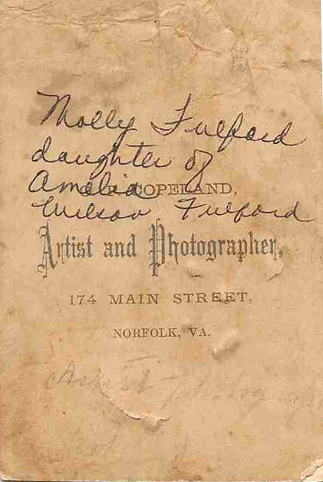 Molly Fulford
daughter of
Amelia
COPELAND,
Wilson Fulford
Artist and Photographer,
174 MAIN STREET,
NORFOLK, VA.
Artist photogra